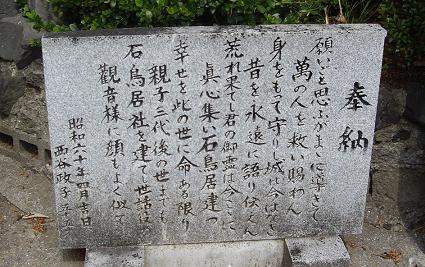 奉納
願いと思ふがまゝに導きて
萬の人を救い賜わん
身をもて守りし城は今はなき
昔を永遠に語り伝へん
荒れ果てし君の御霊は今ここに
眞心集い石鳥居建つ
幸せを此の世に命ある限り
親子三代後の世までも
石鳥居社を建て世話
観音様に顔もよく似て
昭和六十年四月吉日
西谷政子